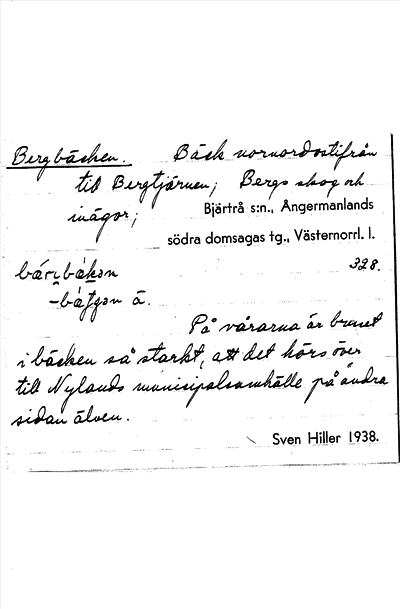 Bergbäcken. Bäck nornordostifrån
till Bergtjärnen; Bergs skog och
inägor; Bjärtrå s:n., Ångermanlands
södra domsagas tg., Västernorrl. l.
328.
På vårarna är bruset
i bäcken så starkt, att det hörs över
till Nylands municipalsamhälle på andra
sidan älven.
Sven Hiller 1938.